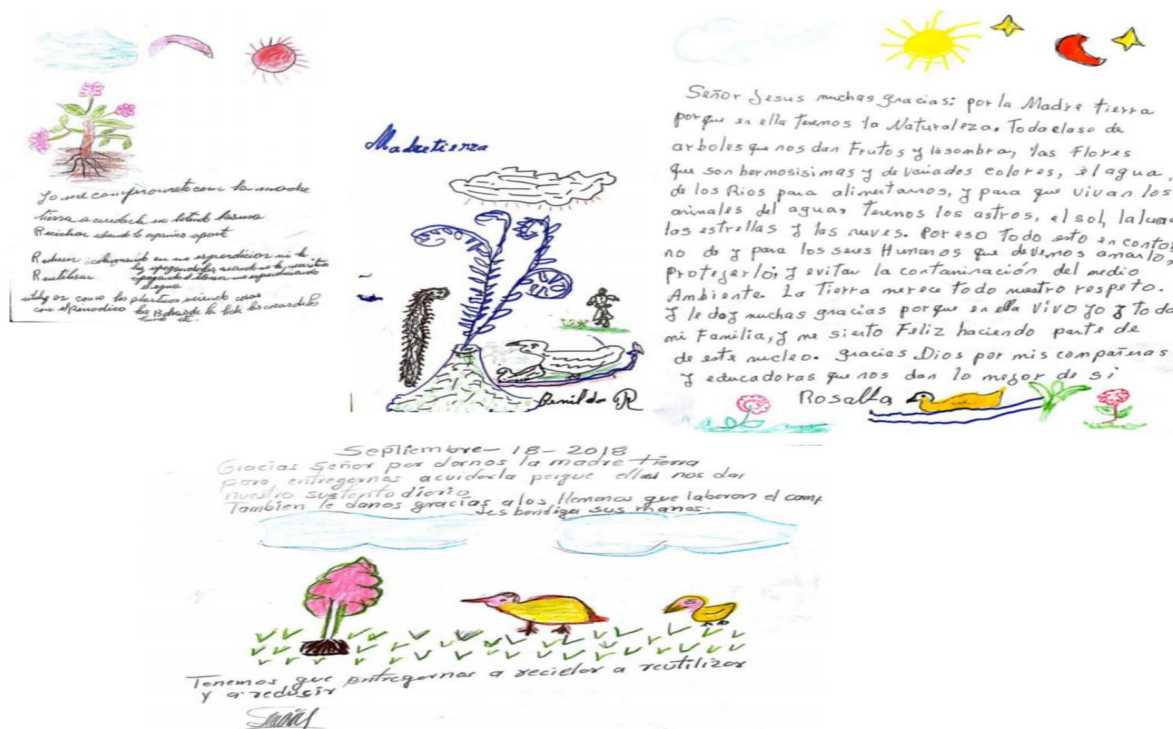 Yo me comprometo con la madre
tierra a cuidarla no botando basura
Reciclar
Reducir
Reutilizar
el agua
con el Periodico
Madretierra
Benilda R
Señor Jesus muchas gracias: por la Madre tierra
porque en ella tenemos la Naturaleza. Toda clase de
arboles que nos dan Frutos y la sombra, las Flores
que son hermosisimas y de variados colores, el agua,
de los Rios para alimentarnos, y para que vivan los
animales del agua, tenemos los astros, el sol, la luna
las estrellas y las nuves. Por eso Todo esto en conto
no do y para los seres Humanos que devemos amarlo,
Protejerlo, y evitar la contaminación del medio
Ambiente. La Tierra merece todo nuestro respeto.
Y le doy muchas gracias porque en ella Vivo yo y toda
mi Familia, y me siento Feliz haciendo parte de
de este nucleo. gracias Dios por mis compañeras
y educadoras que nos dan lo mejor de si
Rosalba
Septiembre - 18 - 2018
Gracias Señor por darnos la madre tierra
para entregarnos a cuidarla porque ella nos da
nuestro sustento diario
Tambien le danos gracias a los Hermanos que laboran el camp
les bendiga sus manos.
Tenemos que entregarnas a reciclar a reutilizar
y a reducir